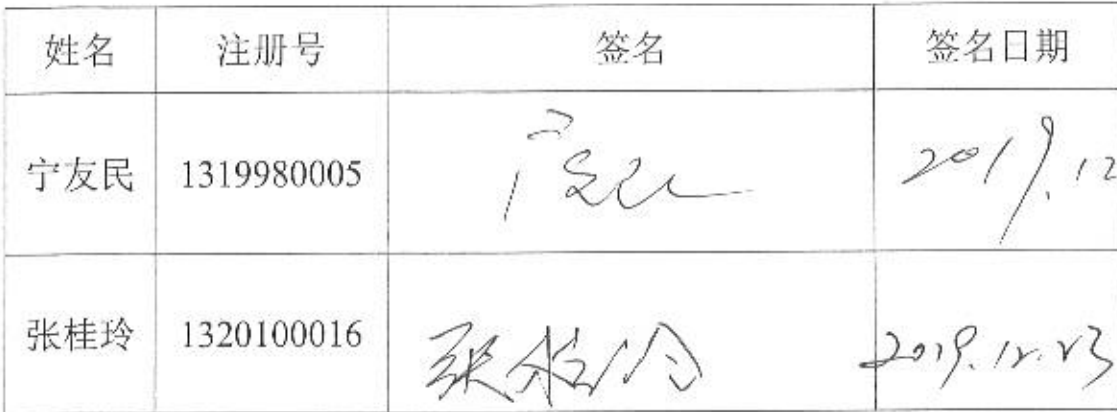 姓名 注册号 签名 签名日期
宁友民 1319980005 宁友民 2019.12
张桂玲 1320100016 张桂玲 2019.12.23